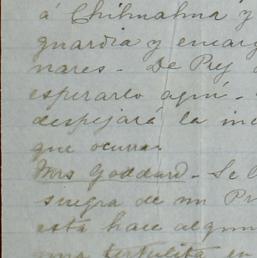 á Chihuahua y
guardia y encarg
nares - De Pey
esperarlo aquí -
despejará la inc
que ocurra.
Mrs Goddard - Se l
suegra de un Pr
está hace algun
una tertulita en